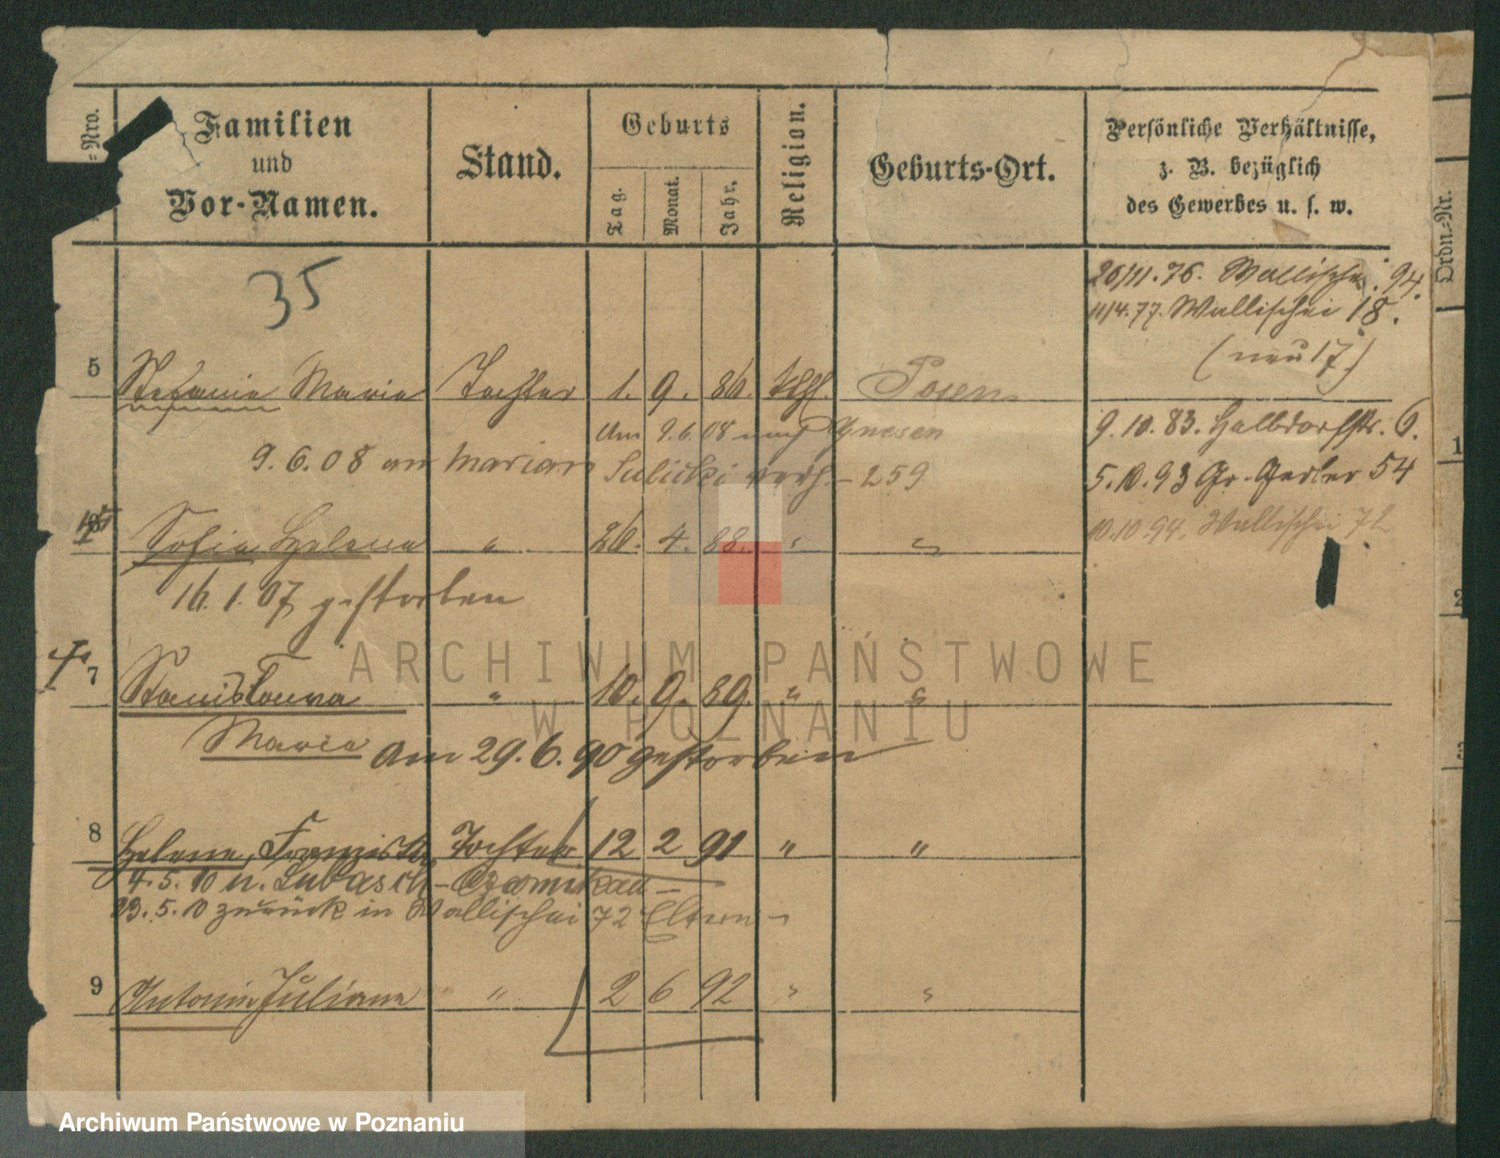 =Nro.
Familien
und
Vor-Namen.
Stand.
Geburts
Tag.
Monat.
Jahr.
Religion.
Geburts-Ort.
Persönliche Verhältnisse,
z. B. bezüglich
des Gewerbes u. s. w.
Ordn=Nr.
35
26/11. 76. Wallischei. 94
11/4. 77. Wallischei 18.
(neu 17)
5 Stefanie Marie Tochter 1. 9. 86. kath. Posen
9. 10. 83. Halbdorfstr. 6.
Am 9.6.08 nach Gnesen
9.6.08 an Marian Sulicki verh. – 259
5. 10. 93 Gr. Gerber 54
Sofia Helena " 26. 4. 88. " "
10.10.94. Wallischei 72
16. 1. 07 gestorben
7 Stanisława " 10. 9. 89. " "
Maria Am 29. 6. 90 gestorben
8 Helena, Franziska Tochter 12 2 91 " "
4. 5. 10 n. Lubasch – Czarnikau –
23. 5. 10 zurück in Wallischei 72 Eltern –
9 Antonie Juliana " 2 6 92 " "
1
2
3
ARCHIWUM PAŃSTWOWE
W POZNANIU
Archiwum Państwowe w Poznaniu